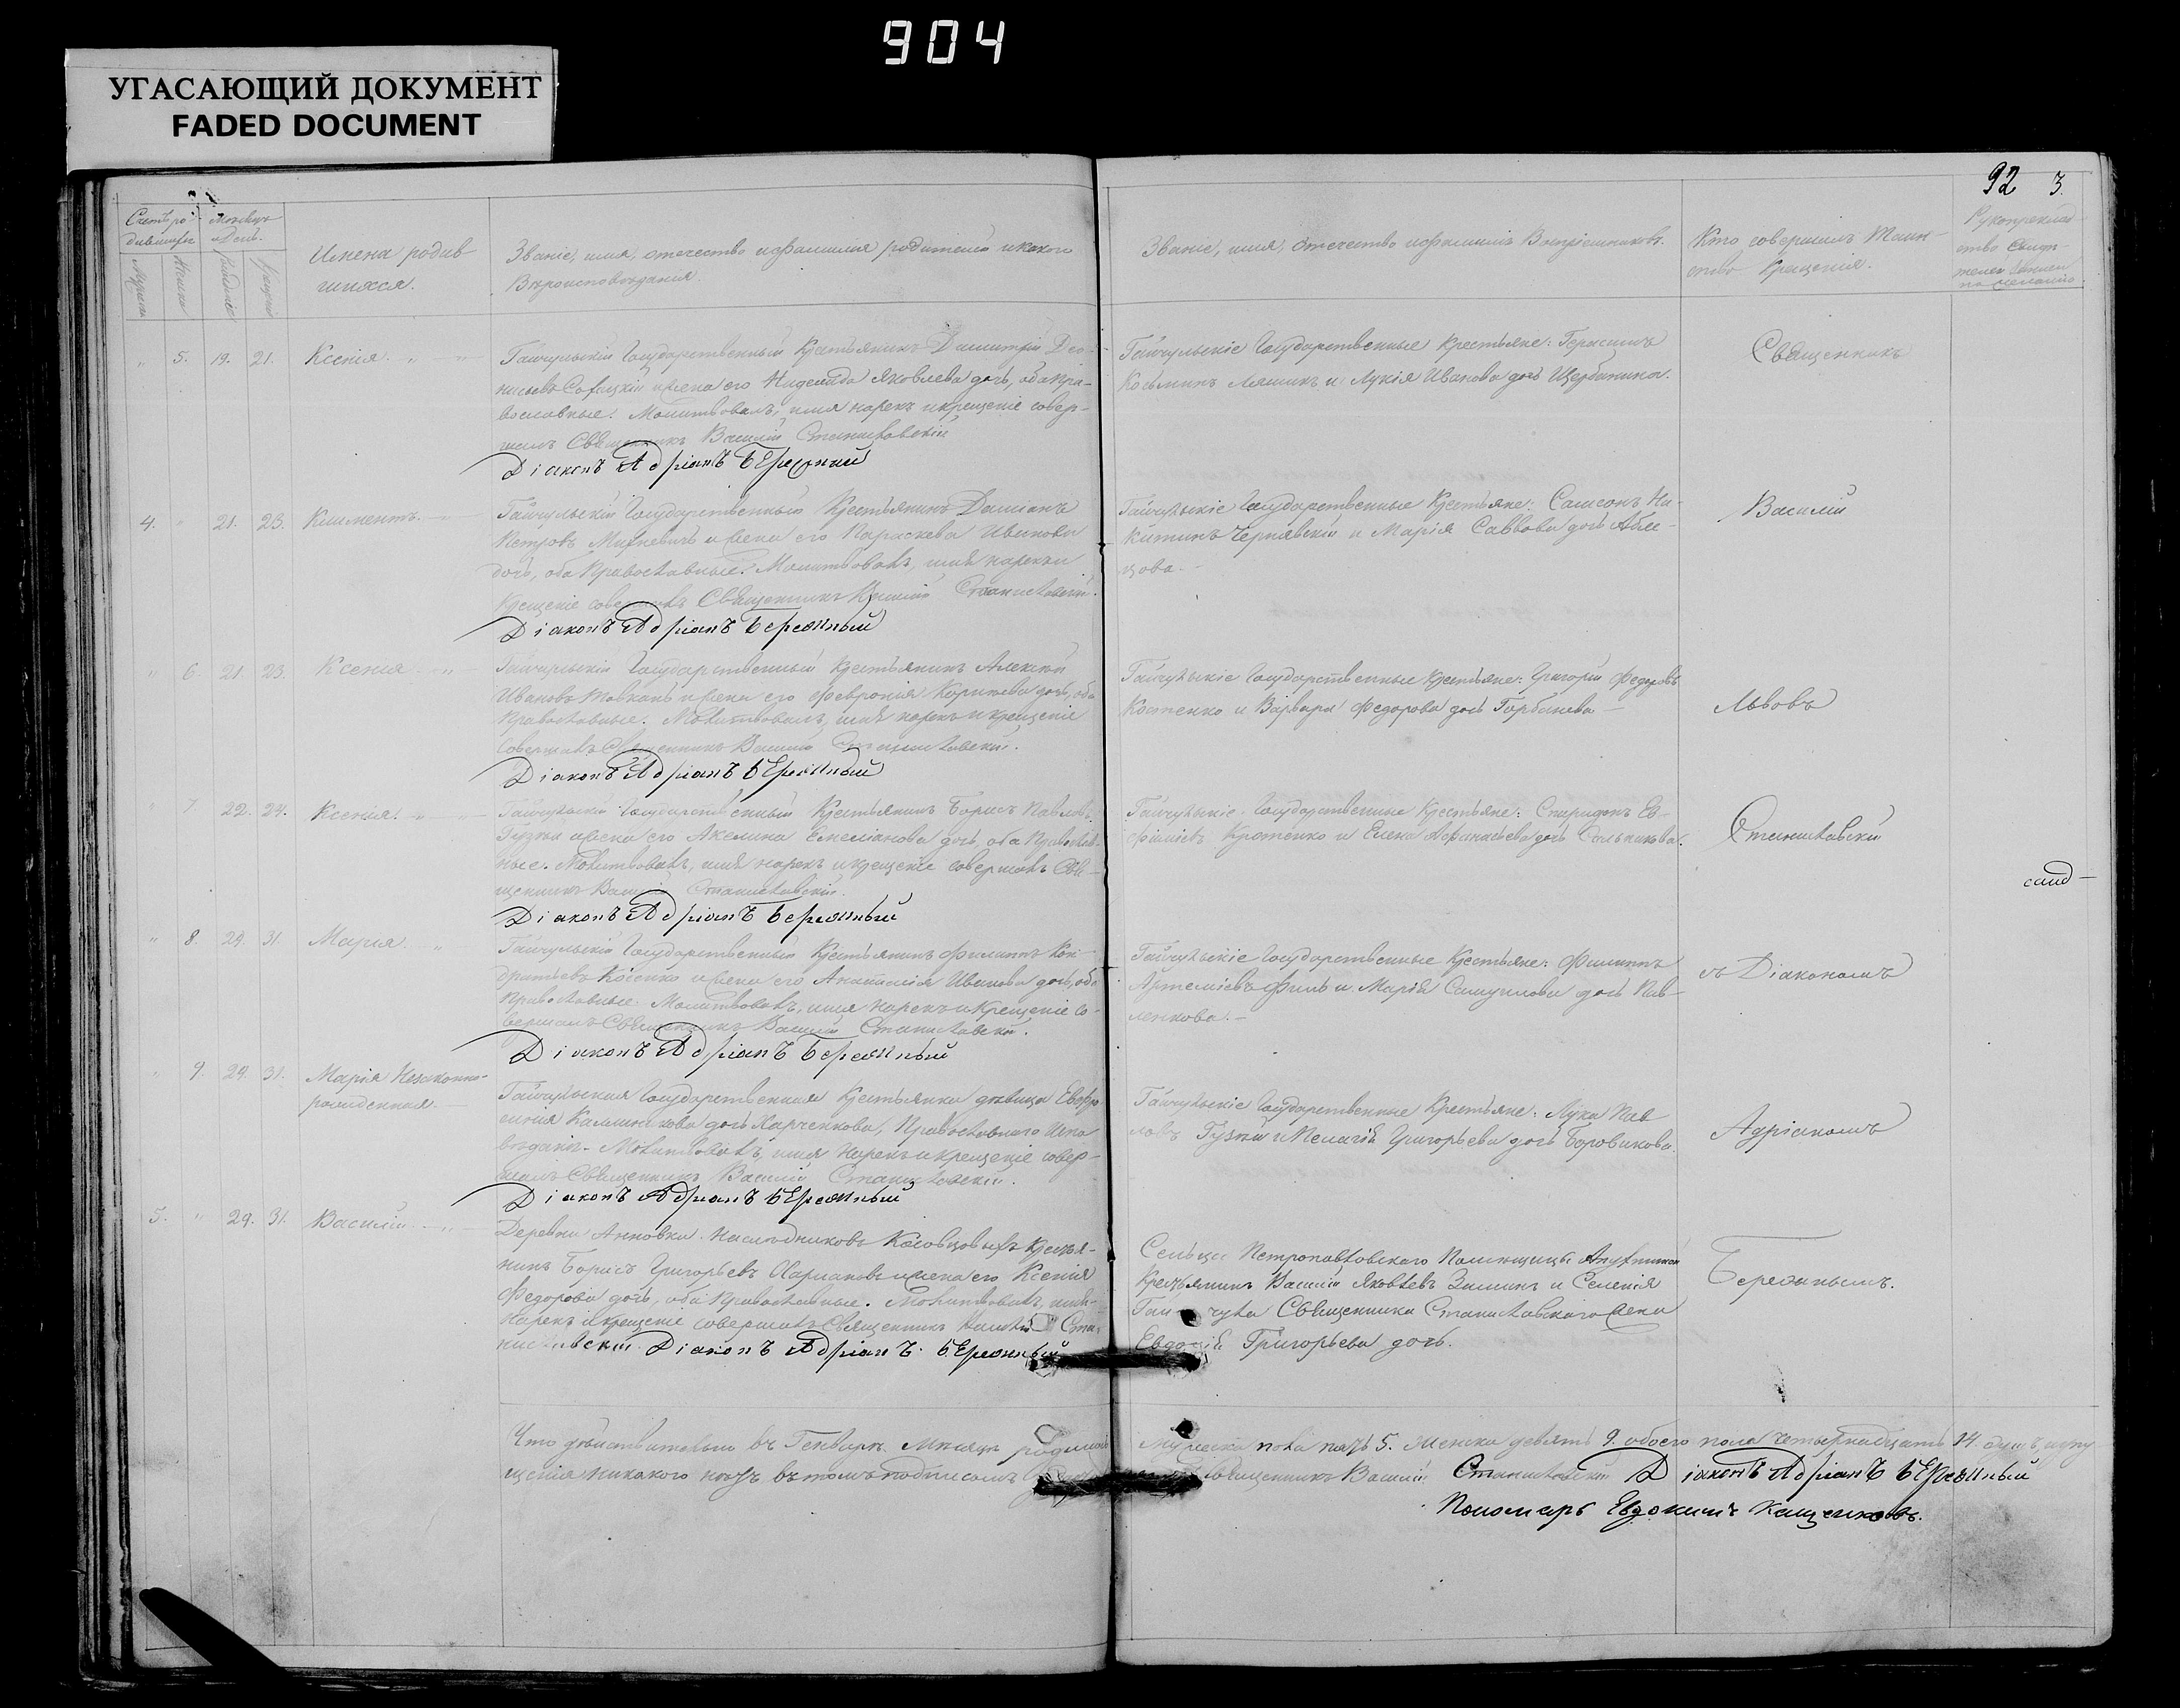 904
УГАСАЮЩИЙ ДОКУМЕНТ
FADED DOCUMENT
92 3
Счетъ ро- Мѣсяцъ
дившихся и День.
Имена родив-
шихся.
Званіе, имя, отечество и фамилія родителей и какого
Вѣроисповѣданія.
Званіе, имя, отечество и фамилія Воспріемниковъ.
Кто совершалъ Таин-
ство Крещенія.
Рукоприклад
ство свидѣ-
телей записи
по желанію
5. 19. 21. Ксенія
Гайчульскій Государственный Крестьянинъ Димитрій Део-
нисіевъ и жена его Надежда Яковлева дочь, оба Пра-
вославные. Молитвовалъ, имя нарекъ и крещеніе совер-
шалъ Священникъ Василій Станиславскій
Діаконъ Адріанъ Бережный
Гайчульскіе Государственные Крестьяне: Герасимъ
Козьминъ Ляшикъ и Лукія Иванова дочь Щербанина.
Священникъ
4. 21. 23. Климентъ.
Гайчульскій Государственный Крестьянинъ Даміанъ
Петровъ Михневичъ и жена его Параскева Иванова
дочь, оба Православные. Молитвовалъ, имя нарекъ и
Крещеніе совершалъ Священникъ Василій Станиславскій.
Діаконъ Адріанъ Бережный
Гайчульскіе Государственные Крестьяне: Самсонъ Ни-
китинъ Чернявскій и Марія Саввова дочь Абле-
цова.
Василій
6. 21. 23. Ксенія
Гайчульскій Государственный Крестьянинъ Алексѣй
Ивановъ Товкачъ и жена его Февронія Корнѣева дочь, оба
Православные. Молитвовалъ, имя нарекъ и крещеніе
Совершалъ Священникъ Василій Станиславскій.
Діаконъ Адріанъ Бережный
Гайчульскіе Государственные Крестьяне: Григорій Федоровъ
Костенко и Варвара Федорова дочь Горбанева
Львовъ
7 22. 24. Ксенія.
Гайчульскій Государственный Крестьянинъ Борисъ Павловъ
Гузій и жена его Акелина Емеліанова дочь, оба Православ-
ные. Молитвовалъ, имя нарекъ и крещеніе совершалъ Свя-
щенникъ Василій Станиславскій.
Діаконъ Адріанъ Бережный
Гайчульскіе Государственные Крестьяне: Спиридонъ Ев-
фиміевъ Кротенко и Елена Афанасьева дочь Сальникова.
Станиславскій
8. 29. 31. Марія.
Гайчульскій Государственный Крестьянинъ Филиппъ Кон-
дратьевъ Косенко и жена его Анастасія Иванова дочь, оба
Православные. Молитвовалъ, имя нарекъ и Крещеніе со-
вершалъ Священникъ Василій Станиславскій.
Діаконъ Адріанъ Бережный
Гайчульскіе Государственные Крестьяне: Филиппъ
Артеміевъ Филь и Марія Самуилова дочь Пав-
ленкова.
съ Діакономъ
9. 29. 31. Марія Незаконно-
рожденная.
Гайчульская Государственная Крестьянка дѣвица Евфро
синія Калиникова дочь Харченкова, Православнаго Испо
вѣданія. Молитвовалъ, имя Нарекъ и крещеніе совер-
шалъ Священникъ Василій Станиславскій.
Діаконъ Адріанъ Бережный
Гайчульскіе Государственные Крестьяне: Лука Пав
ловъ Гузій и Пелагія Григорьева дочь Боровикова.
Адріаномъ
5. 29. 31. Василій
Деревни Анновки Наслѣдниковъ Косовцовыхъ Крестья-
нинъ Борисъ Григорьевъ и жена его Ксенія
Федорова дочь, оба Православные. Молитвовалъ, имя-
Нарекъ и крещеніе совершалъ Священникъ Василій Ста-
ниславскій. Діаконъ Адріанъ Бережный
Сельца Петропавловского Помѣщицы
Крестьянинъ Василій Яковлевъ Зиминъ и Селенія
Гайчула Священника Станиславскаго жена
Евдокія Григорьева дочь.
Бережнымъ.
Что дѣйствительно въ Генварѣ Мѣсяцѣ родилось Мужеска пола пять 5. Женска девять 9. обоего пола четырнадцать 14. душъ,
щенія никакого нѣтъ въ томъ подписомъ Священникъ Василій Станиславскій Діаконъ Адріанъ Бережный
Пономарь Евдокимъ Кащенковъ.